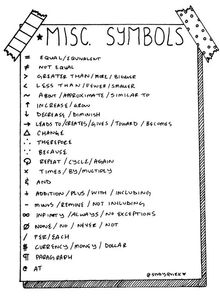 ★ MISC. SYMBOLS
= EQUAL/EQUIVALENT
≠ NOT EQUAL
> GREATER THAN/MORE/BIGGER
< LESS THAN/FEWER/SMALLER
~ ABOUT/APPROXIMATE/SIMILAR TO
↑ INCREASE/GROW
↓ DECREASE/DIMINISH
→ LEADS TO/CREATES/GIVES/TOWARD/BECOMES
△ CHANGE
∴ THEREFORE
∵ BECAUSE
REPEAT/CYCLE/AGAIN
× TIMES/BY/MULTIPLY
& AND
+ ADDITION/PLUS/WITH/INCLUDING
- MINUS/REMOVE/NOT INCLUDING
∞ INFINITY/ALWAYS/NO EXCEPTIONS
NONE/NO/NEVER/NOT
PER/EACH
$ CURRENCY/MONEY/DOLLAR
¶ PARAGRAPH
@ AT